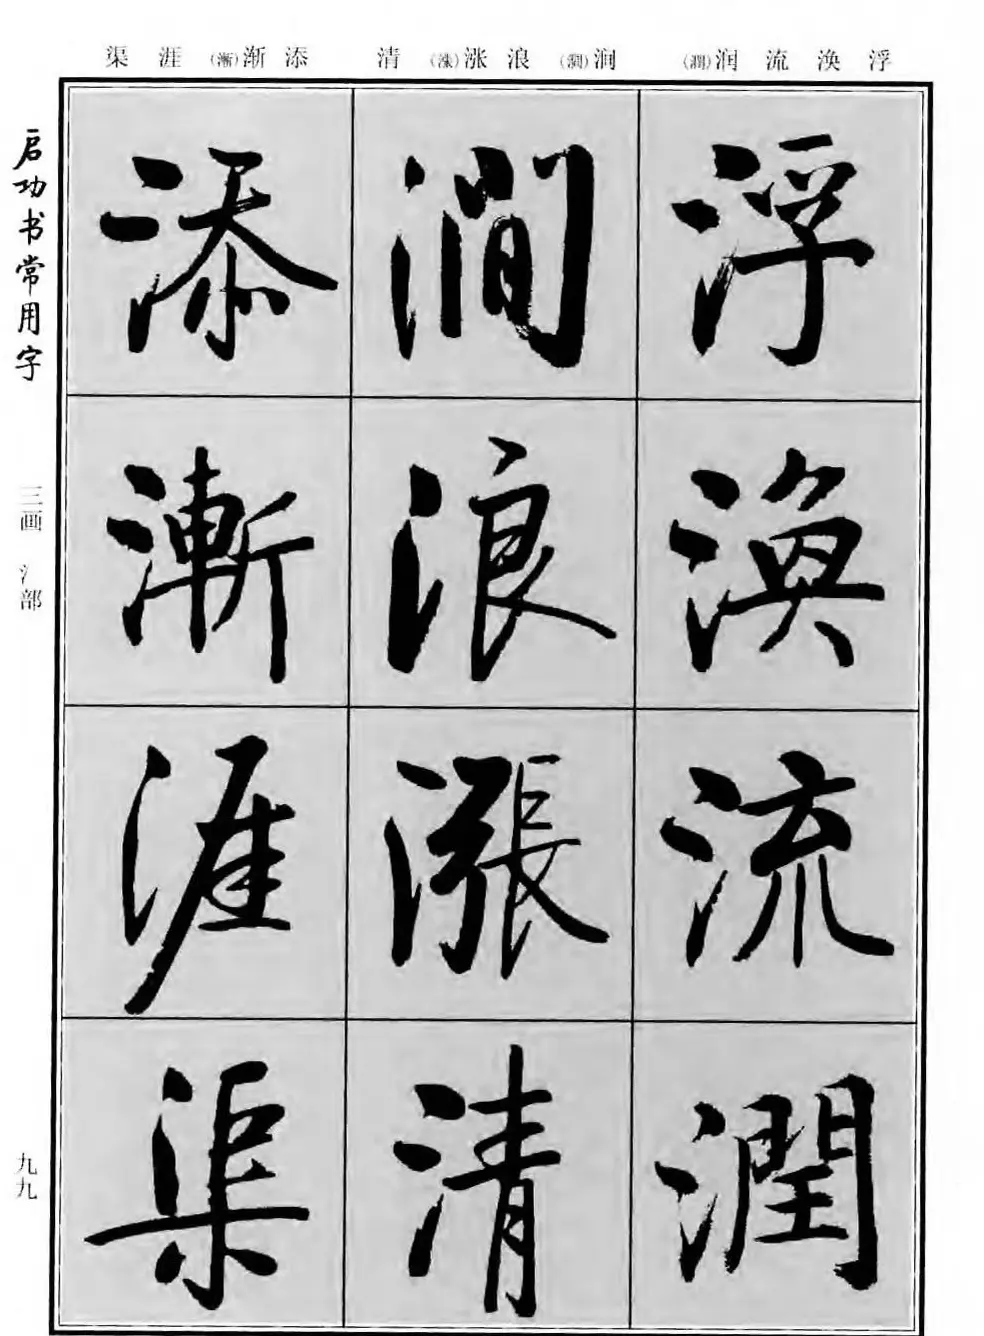 浮 涣 流 润(潤) 涧(澗) 浪 涨(漲) 清 添 渐(漸) 涯 渠
浮渙流潤
澗浪漲清
添漸涯渠
启功书常用字
三画 氵部
九九